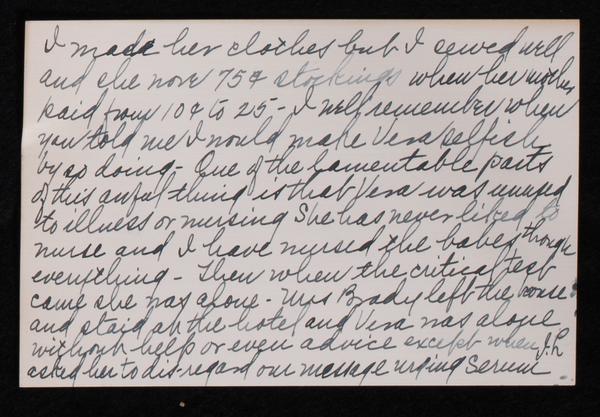 I made her clothes but I sewed well
and she wore 75¢ stockings when her mother
paid from 10¢ to 25 - I well remember when
you told me I would make Vera selfish
by so doing - One of the lamentable parts
of this awful thing is that Vera was unused
to illness or nursing She has never liked to
nurse and I have nursed the babes through
everything - Then when the critical test
came she was alone - Mrs Brady left the house
and staid at the hotel and Vera was alone
without help or even advice except when J. L
asked her to dis-regard our message urging Serum